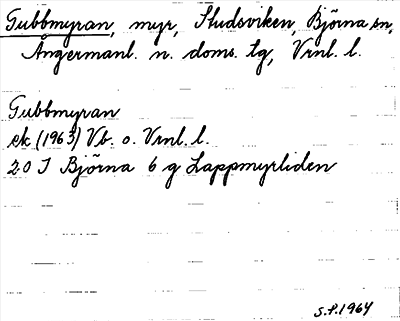 Gubbmyran, myr, Studsviken, Björna sn,
Ångermanl. n. doms. tg, Vrnl. l.
Gubbmyran
ek (1963) Vb. o. Vrnl. l.
20 I Björna 6 g Lappmyrliden
S.P. 1964